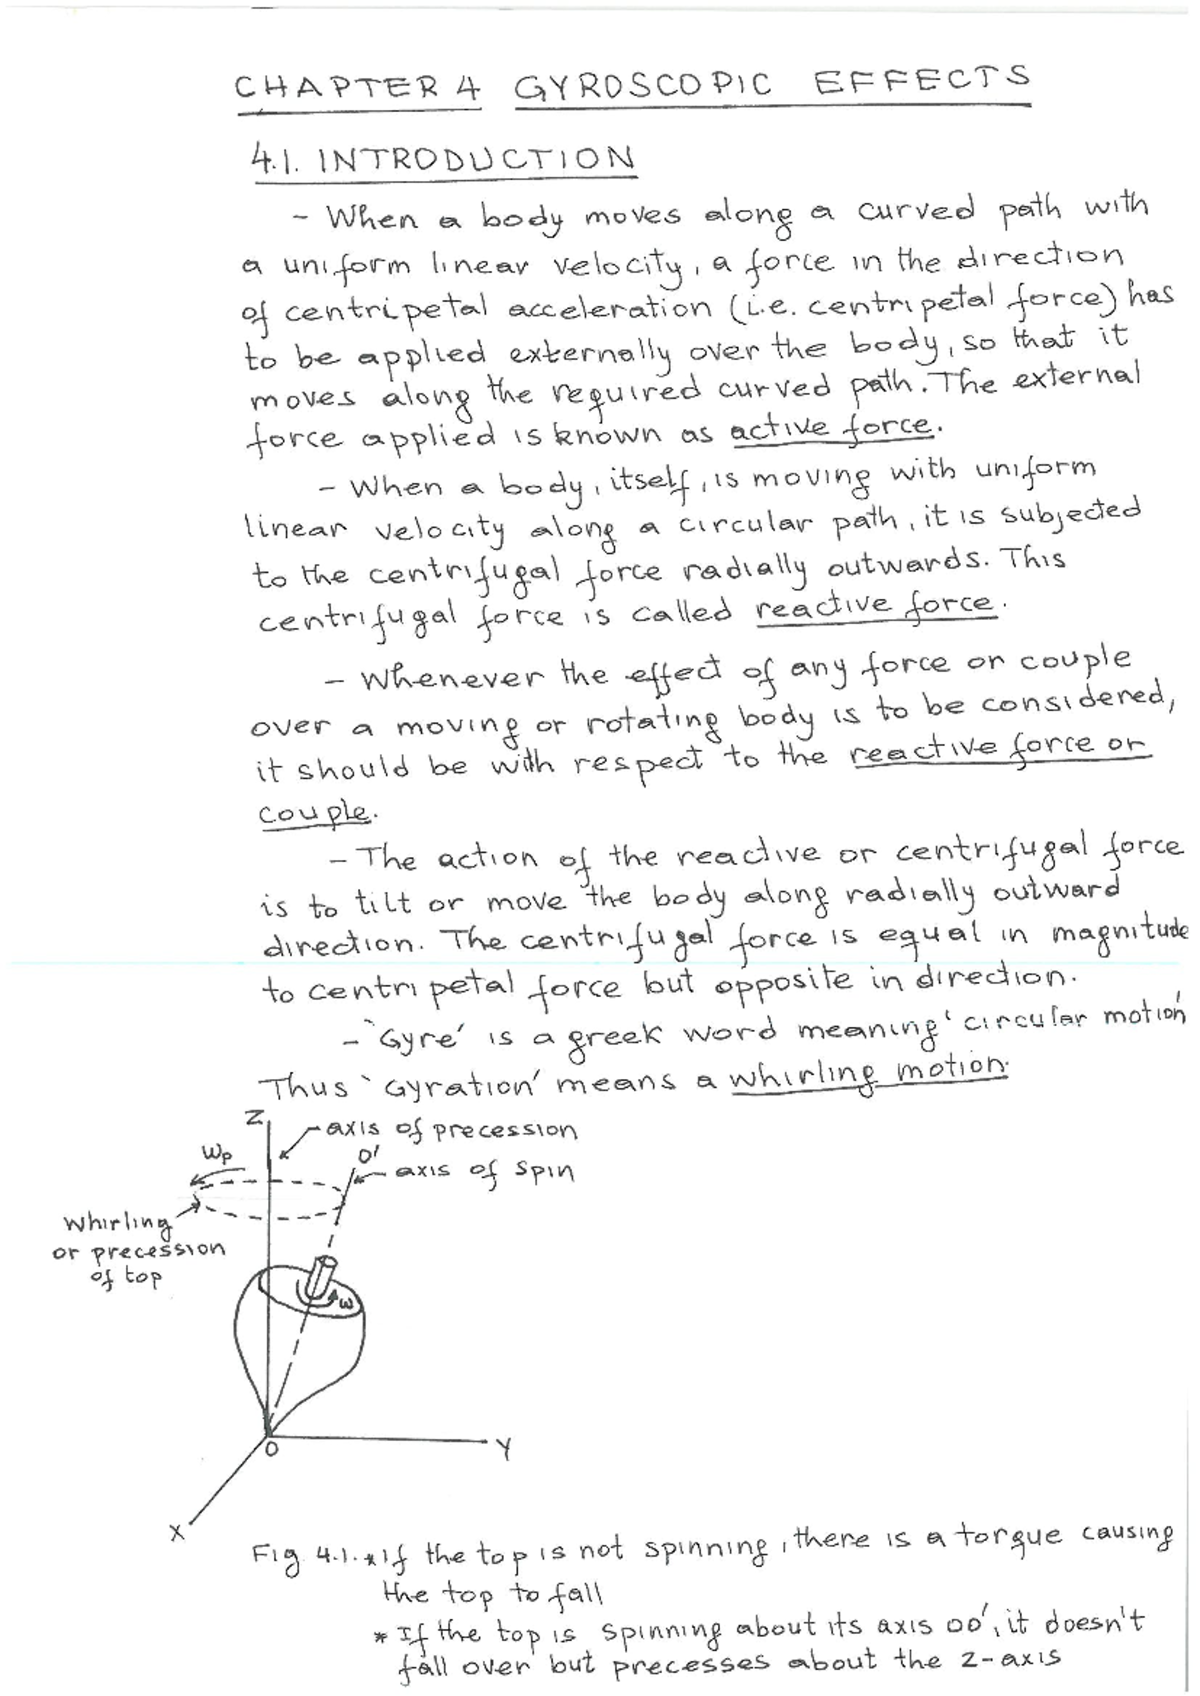 CHAPTER 4 GYROSCOPIC EFFECTS
4.1. INTRODUCTION
- When a body moves along a curved path with
a uniform linear velocity, a force in the direction
of centripetal acceleration (i.e. centripetal force) has
to be applied externally over the body, so that it
moves along the required curved path. The external
force applied is known as active force.
- When a body, itself, is moving with uniform
linear velocity along a circular path, it is subjected
to the centrifugal force radially outwards. This
centrifugal force is called reactive force.
- Whenever the effect of any force or couple
over a moving or rotating body is to be considered,
it should be with respect to the reactive force or
couple.
- The action of the reactive or centrifugal force
is to tilt or move the body along radially outward
direction. The centrifugal force is equal in magnitude
to centripetal force but opposite in direction.
- `Gyre' is a greek word meaning 'circular motion'
Thus `Gyration' means a whirling motion.
Z
axis of precession
ωp
O'
axis of spin
Whirling
or precession
of top
ω
O
Y
X
Fig 4.1. * If the top is not spinning, there is a torque causing
the top to fall
* If the top is spinning about its axis OO', it doesn't
fall over but precesses about the z-axis